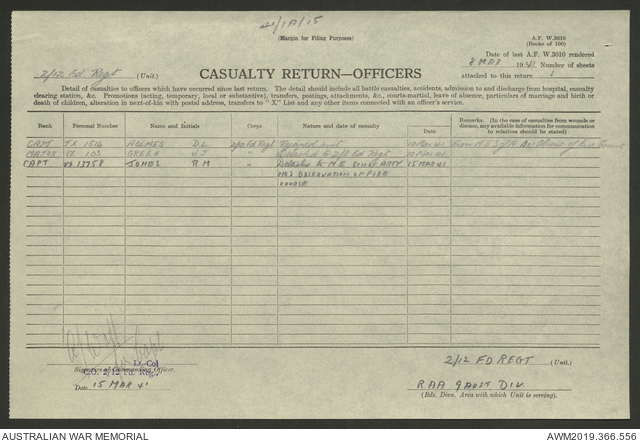 41/10/15
(Margin for Filing Purposes)
A.F. W.3010
(Books of 100)
Date of last A.F. W.3010 rendered
8 MAR 1941 Number of sheets
attached to this return 1
2/12 Fd Regt (Unit.)
CASUALTY RETURN—OFFICERS
Detail of casualties to officers which have occurred since last return. The detail should include all battle casualties, accidents, admission to and discharge from hospital, casualty
clearing station, &c. Promotions (acting, temporary, local or substantive), transfers, postings, attachments, &c., courts-martial, leave of absence, particulars of marriage and birth or
death of children, alteration in next-of-kin with postal address, transfers to "X" List and any other items connected with an officer's service.
Rank Personal Number Name and Initials Corps Nature and date of casualty Date Remarks. (In the case of casualties from wounds or disease, any available information for communication to relatives should be stated)
CAPT HOLMES D L 2/12 Fd Regt Rejoined unit 10 Mar 41 from M E
MAJOR GREEN " 2/8 Fd Regt
CAPT VX 13758 JONES R M " Detached to M.E. SCHOOL ARTY 15 MAR 41
OBSERVATION OF FIRE
COURSE
Lt-Col
Signature of Commanding Officer.
C.O. 2/12 Fd. Regt.
Date 15 MAR 41
2/12 FD REGT (Unit.)
RAA 9 AUST DIV
(Bde. Divn. Area with which Unit is serving).
AUSTRALIAN WAR MEMORIAL
AWM2019.366.556